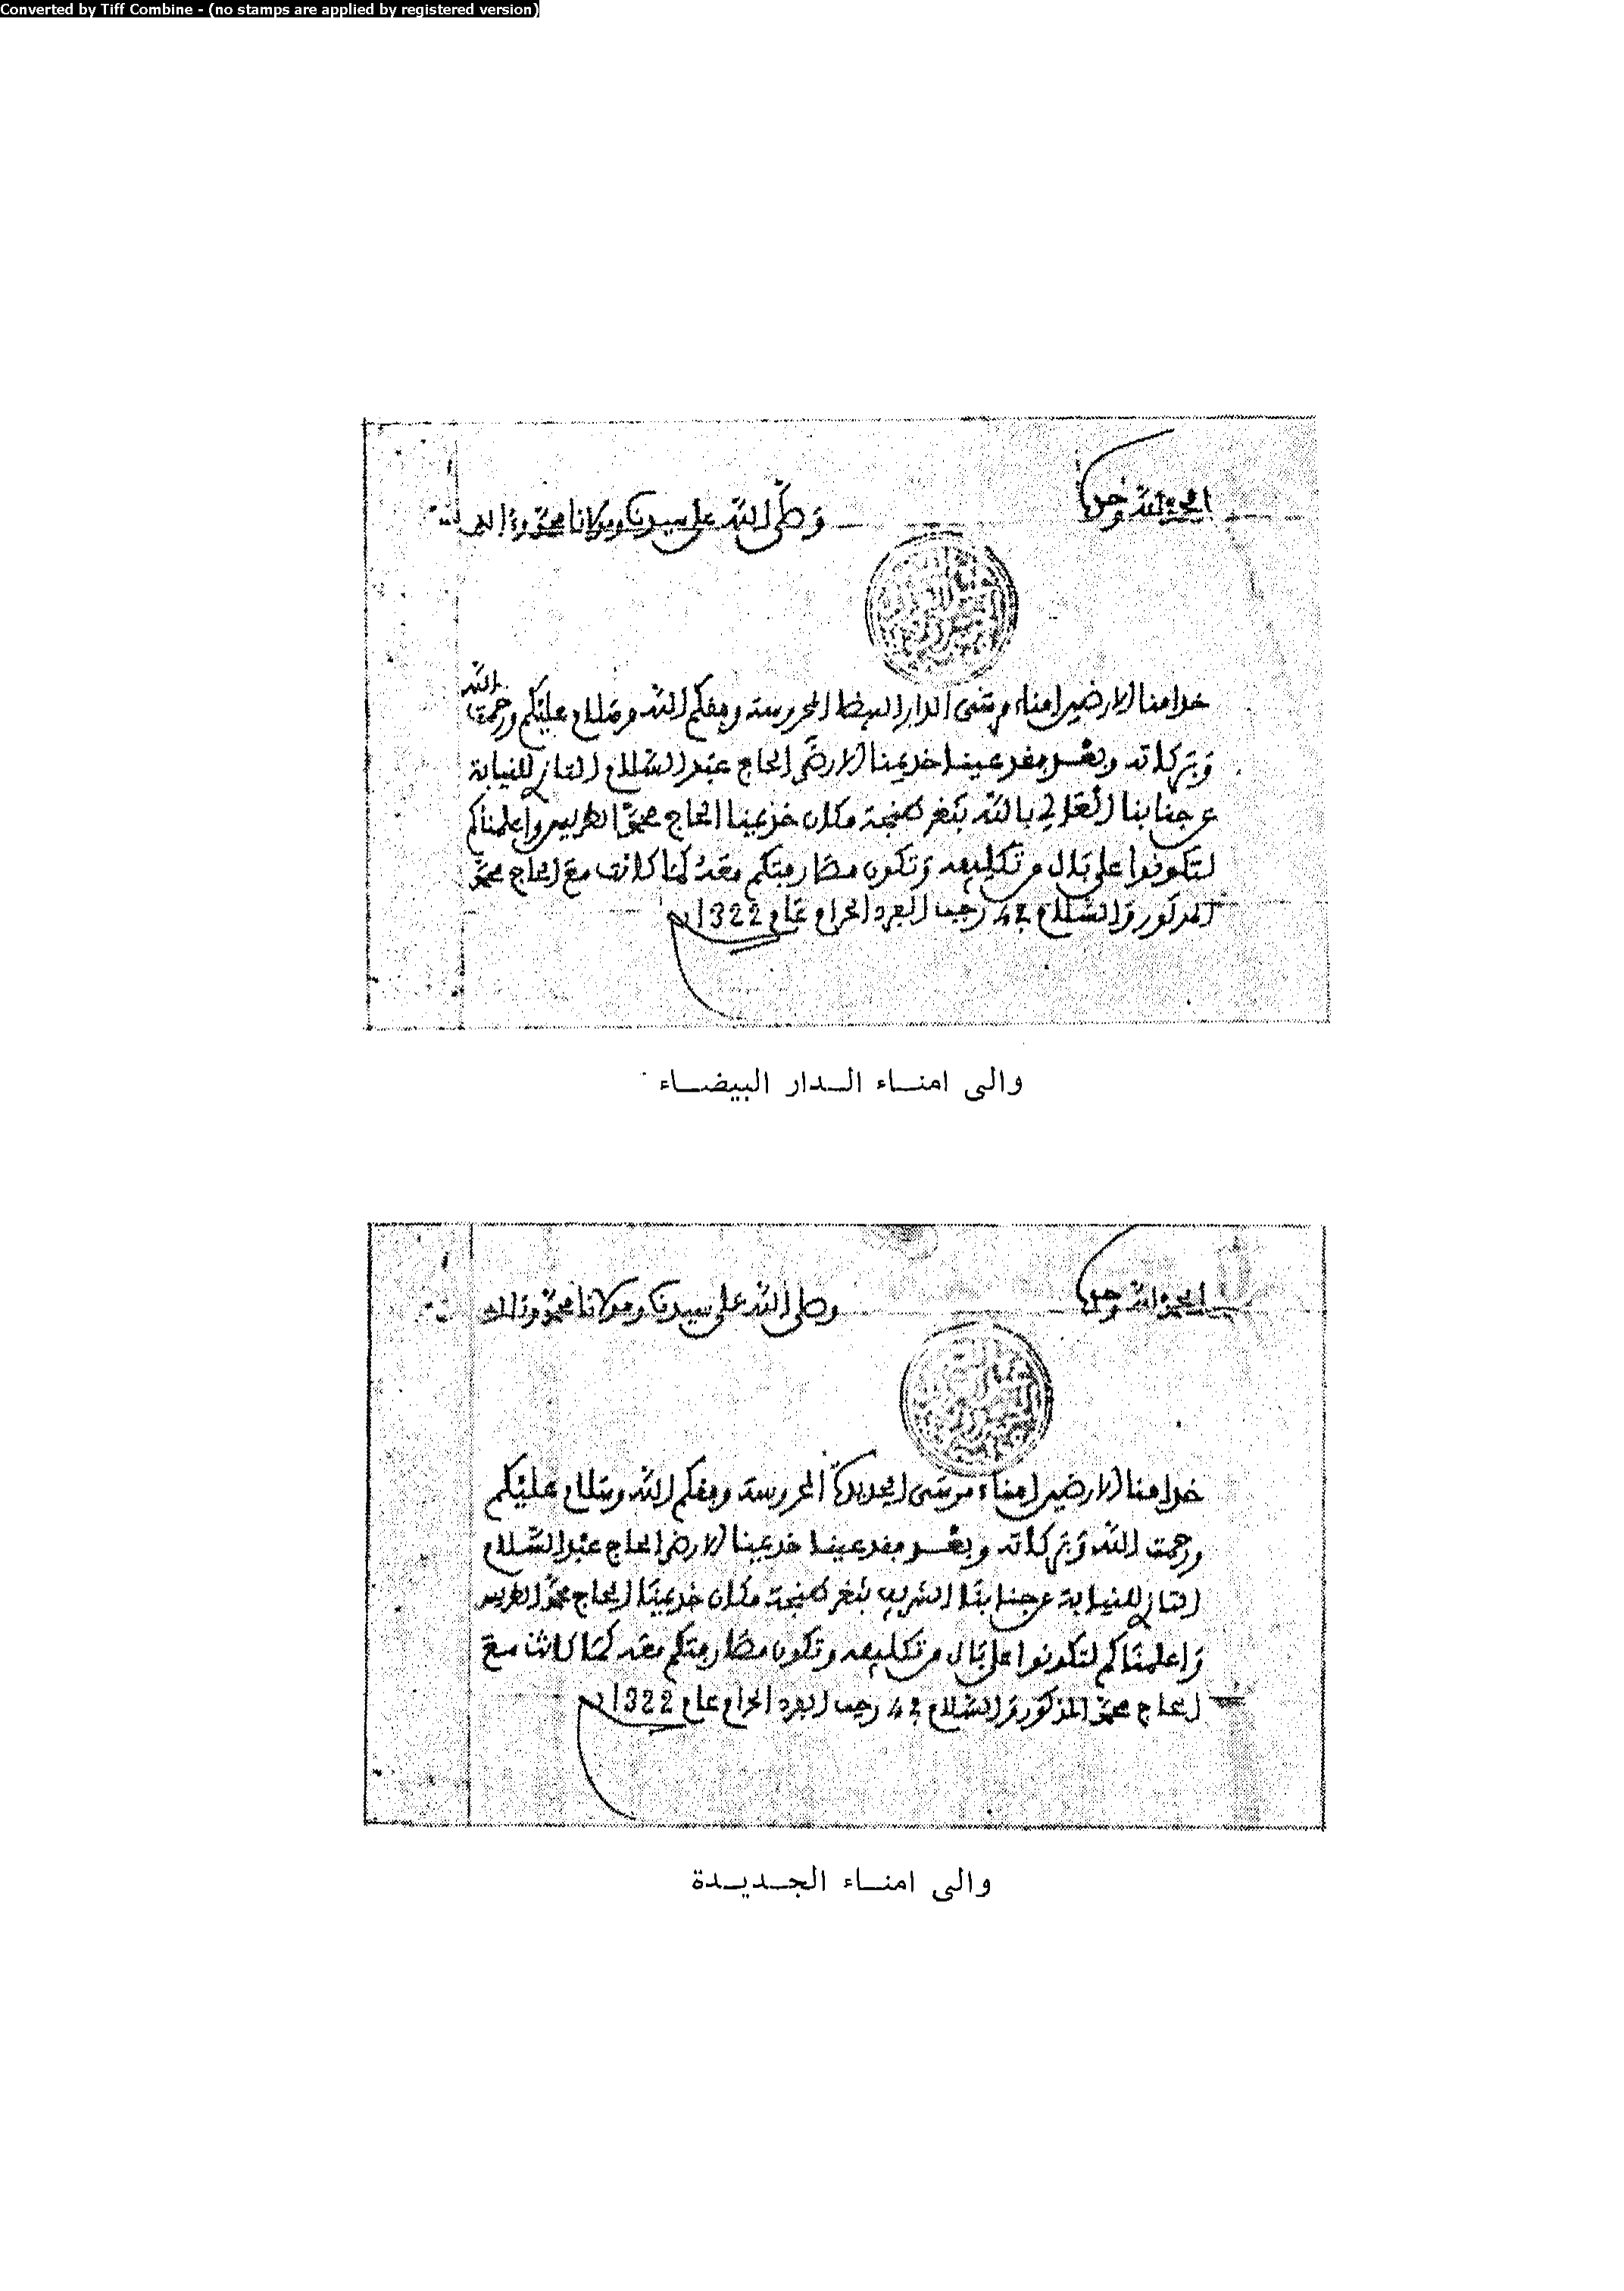 Converted by Tiff Combine - (no stamps are applied by registered version)
الحمد لله وحده
وصلى الله على سيدنا ومولانا محمد وءاله
خدامنا الارضين امناء مرسى الدار البيضا المحروسة وفقكم الله وسلام عليكم ورحمت الله
وبركاته وبعد فقد عيننا خديمنا الارضى الحاج عبد السلام التازي للنيابة
عن جنابنا العالي بالله بثغر طنجة مكان خديمنا الحاج محمد الطريس وأعلمناكم
لتكونوا على بال من تكليفه وتكون مصارفتكم معه كما كانت مع الحاج محمد
المذكور والسلام في 4 رجب الفرد الحرام عام 1322
والى امناء الدار البيضاء
الحمد لله وحده
وصلى الله على سيدنا ومولانا محمد وءاله
خدامنا الارضين امناء مرسى الجديدة المحروسة وفقكم الله وسلام عليكم
ورحمت الله وبركاته وبعد فقد عيننا خديمنا الارضى الحاج عبد السلام
التازي للنيابة عن جنابنا الشريف بثغر طنجة مكان خديمنا الحاج محمد الطريس
وأعلمناكم لتكونوا على بال من تكليفه وتكون مصارفتكم معه كما كانت مع
الحاج محمد المذكور والسلام في 4 رجب الفرد الحرام عام 1322
والى امناء الجديدة